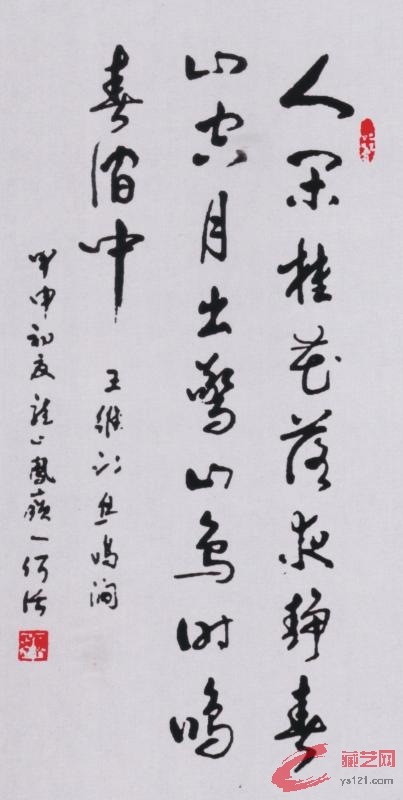 人闲桂花落夜静春
山空月出驚山鸟时鸣
春涧中
王维诗鸟鸣涧
甲申初夏
藏艺网
ys121.com